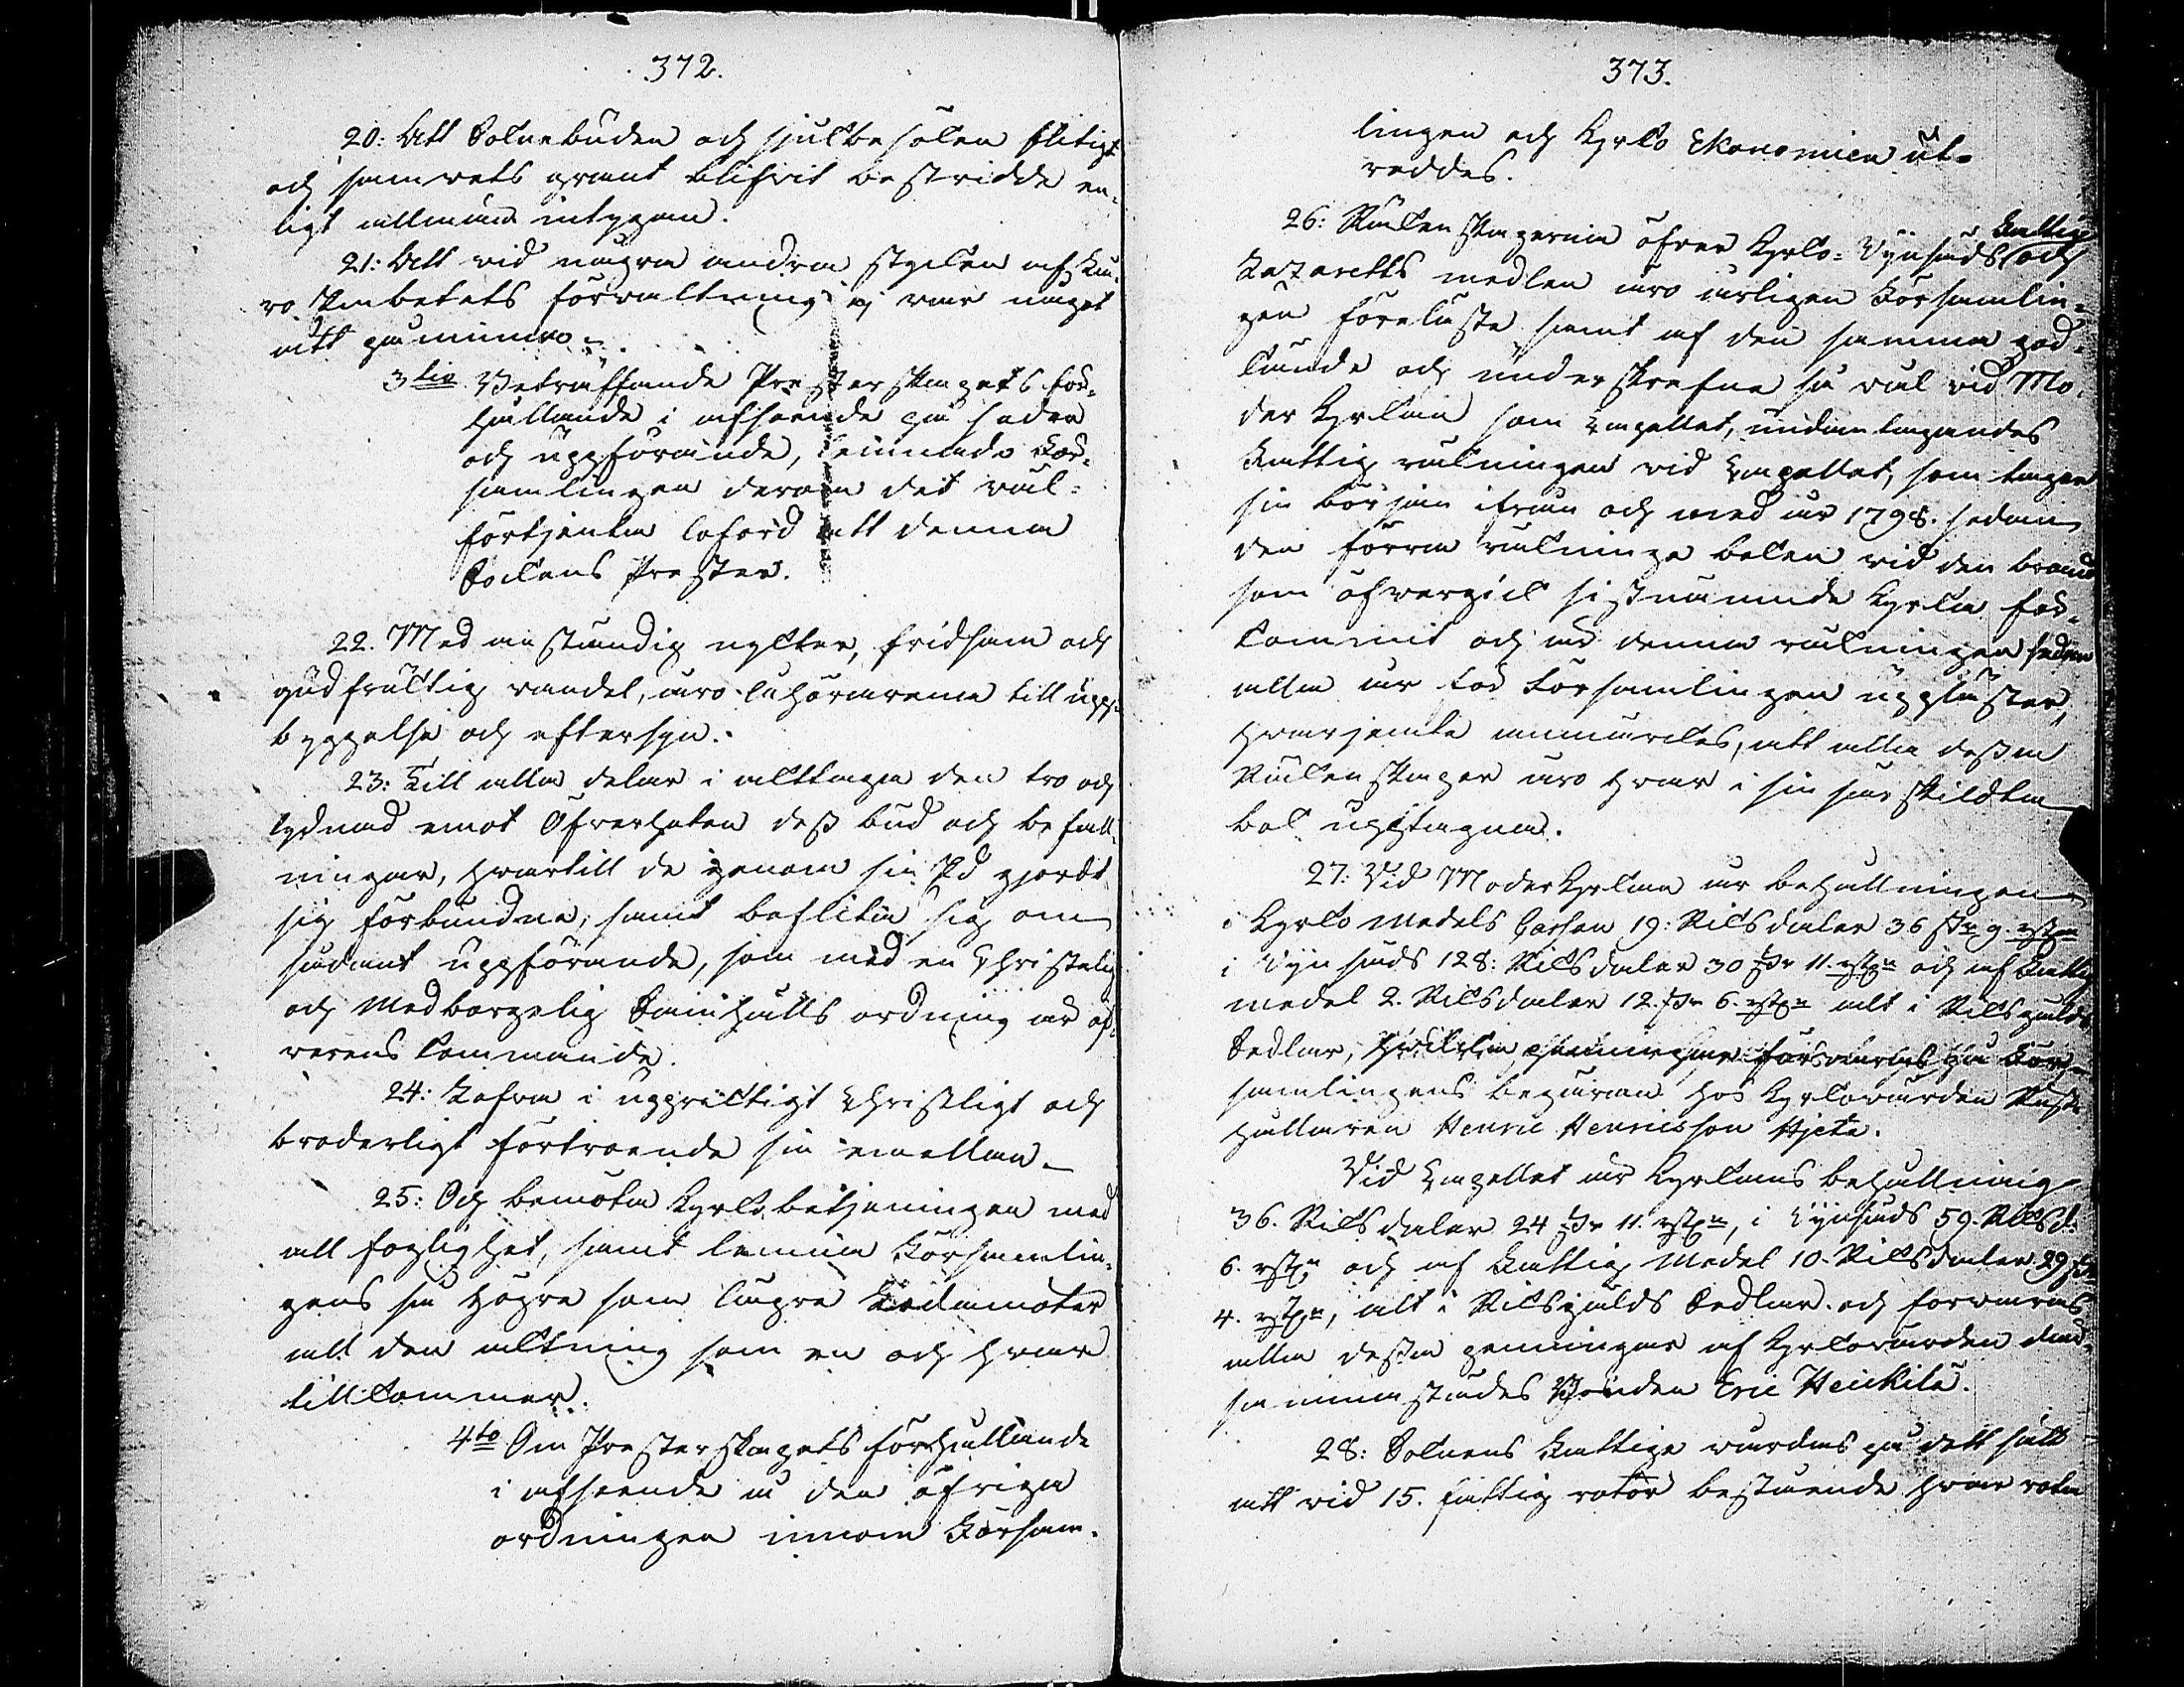 372.
20: Att Sokne buden och sjukbesöken flitigt
och samvets grant blifvit bestridde en-
ligt allmän intygan.
21: Att vid några andra stycken af Lä-
ro Embetets förvaltning ej var något
att påminna.
3tio Beträffande Presterskapets för-
hållande i afseende på seder
och uppförande, lemnade För-
samlingen derom det väl-
förtjenta loford att denna
Sockens Prester.
22. Med anständig nykter, fridsam och
gudfruktig vandel, äro åhörarena till upp-
byggelse och eftersyn.
23: Till alla delar i akttaga den tro och
lydnad emot Öfverheten dess bud och befall-
ningar, hvartill de genom sin Ed gjordt
sig förbundna, samt beflita sig om
sådant uppförande, som med en Christelig
och Medborgelig Samhälls ordning är öf-
verens kommande.
24: Lefva i uppriktigt Christligt och
broderligt förtroende sin emellan.
25: Och bemöta Kyrko betjeningen med
all foglighet, samt lemna Församlin-
gens så högre som lägre Ledamöter
all den aktning som en och hvar
tillkommer.
4to Om Presterskapets förhållande
i afseende å den öfriga
ordningen innom Församl-
373.
lingen och Kyrko Ekonomien ut-
reddes.
26: Räkenskaperna öfver Kyrko- Lijnsads Fattig och
Lazaretts medlen äro årligen Församlin-
gen föreläste samt af den samma god-
kände och underskrefne så väl vid Mo-
der Kyrkan som Capellet, undantagandes
Fattig räkningen vid Capellet, som tager
sin början ifrån och med år 1798. sedan
den förra räkninge boken vid den brand
som öfvergick sistnämnde Kyrka för-
kommit och är denna räkningen sedan
alla år för Församlingen uppläster,
hvarjemte anmärktes, att alla dessa
Räkenskaper äro hvar i sin särskildta
bok upptagna.
27: Vid Moder Kyrkan är behållningen
i Kyrko medels Cassan 19: Riksdaler 36 sk 9. rst
i Lijnsads 128: Riksdaler 30 sk 11. rst och af Fattig
medel 2. Riksdaler 12. sk 6. rst alt i Riksgälds
Sedlar, hvilka penningar förvaras på För-
samlingens begäran hos Kyrkovärden Rust-
hållaren Henric Henricsson Hjeta.
Vid Capellet är Kyrkans behållning
36. Riksdaler 24 sk 11. rst, i Lijnsads 59. Riksd.
6. rst och af Fattig Medel 10. Riksdaler 29 sk
4. rst, alt i Riksgälds Sedlar och förvaras
alla dessa penningar af Kyrkovärden der-
sammastädes Bonden Eric Heickilä.
28: Soknens Fattige vårdas på dett sätt
att vid 15. fattig rotor bestående hvar rota